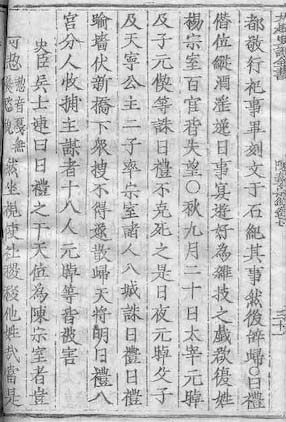 都敬行祀事畢刻文于石紀其事然後辭歸○日禮
僭位縱酒淫逸日事宴遊好為雜技之戲欲復姓
楊宗室百官皆失望○秋九月二十日太宰元暭
及子元偰等誅日禮不克死之是日夜元暭父子
及天寧公主二子率宗室諸人入城誅日禮日禮
踰墻伏新橋下衆搜不得遂散歸天將明日禮入
宮分人收捕主謀者十八人元暭等皆被害
史臣吳士連曰日禮之于天位為陳宗室者豈
坐視使社稷移他姓哉當是